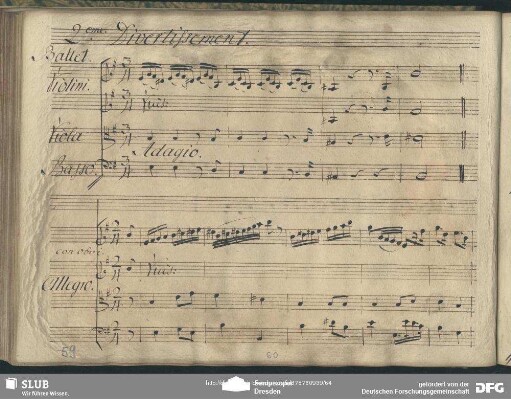 2.eme Divertissement.
Ballet.
Violini.
Unis:
Viola
Adagio.
Basso.
con oboe
Unis:
Allegro.
59.
60
SLUB
Wir führen Wissen.
http://
64
Dresden
gefördert von der
Deutschen Forschungsgemeinschaft
DFG